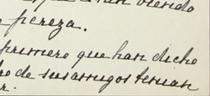 han viendo
pereza.
primero que han dicho
de sus amigos tenian